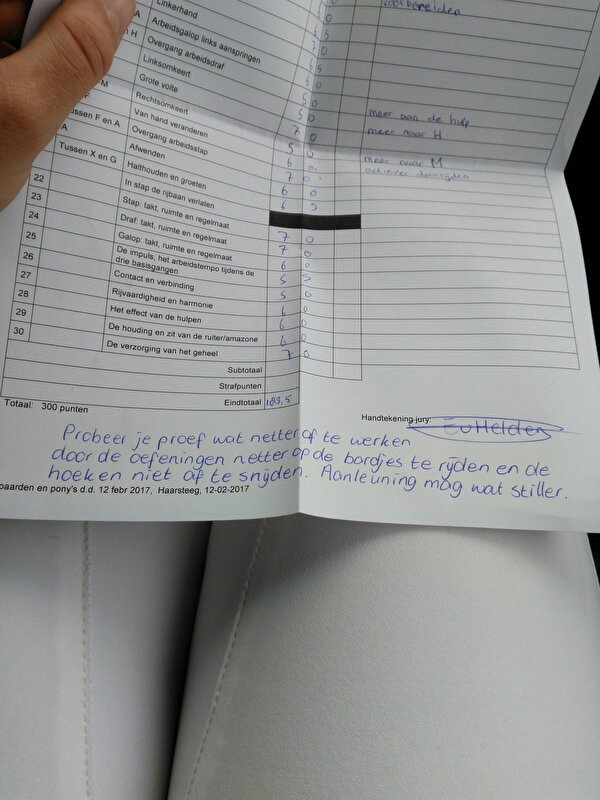 voorbereiden
Linkerhand
A Arbeidsgalop links aanspringen
H Overgang arbeidsdraf
Linksomkeert
Grote volte
Rechtsomkeert 5 0 meer aan de hulp
Van hand veranderen 7 0 meer naar H
Tussen F en A Overgang arbeidsstap 5 0
A Afwenden 6 0 meer naar M
Tussen X en G Halthouden en groeten 7 0 actiever doorrijden
In stap de rijbaan verlaten 6 0
22 Stap: takt, ruimte en regelmaat 6 5
23 Draf: takt, ruimte en regelmaat 7 0
24 Galop: takt, ruimte en regelmaat 7 0
25 De impuls, het arbeidstempo tijdens de drie basisgangen 6 0
26 Contact en verbinding 5 5
27 Rijvaardigheid en harmonie 5 0
28 Het effect van de hulpen 6 0
29 De houding en zit van de ruiter/amazone 6 0
30 De verzorging van het geheel 7 0
Subtotaal
Strafpunten
Eindtotaal 183,5
Totaal: 300 punten
Handtekening jury:
Probeer je proef wat netter af te werken
door de oefeningen netter op de bordjes te rijden en de
hoeken niet af te snijden. Aanleuning mag wat stiller.
paarden en pony's d.d. 12 febr 2017, Haarsteeg, 12-02-2017